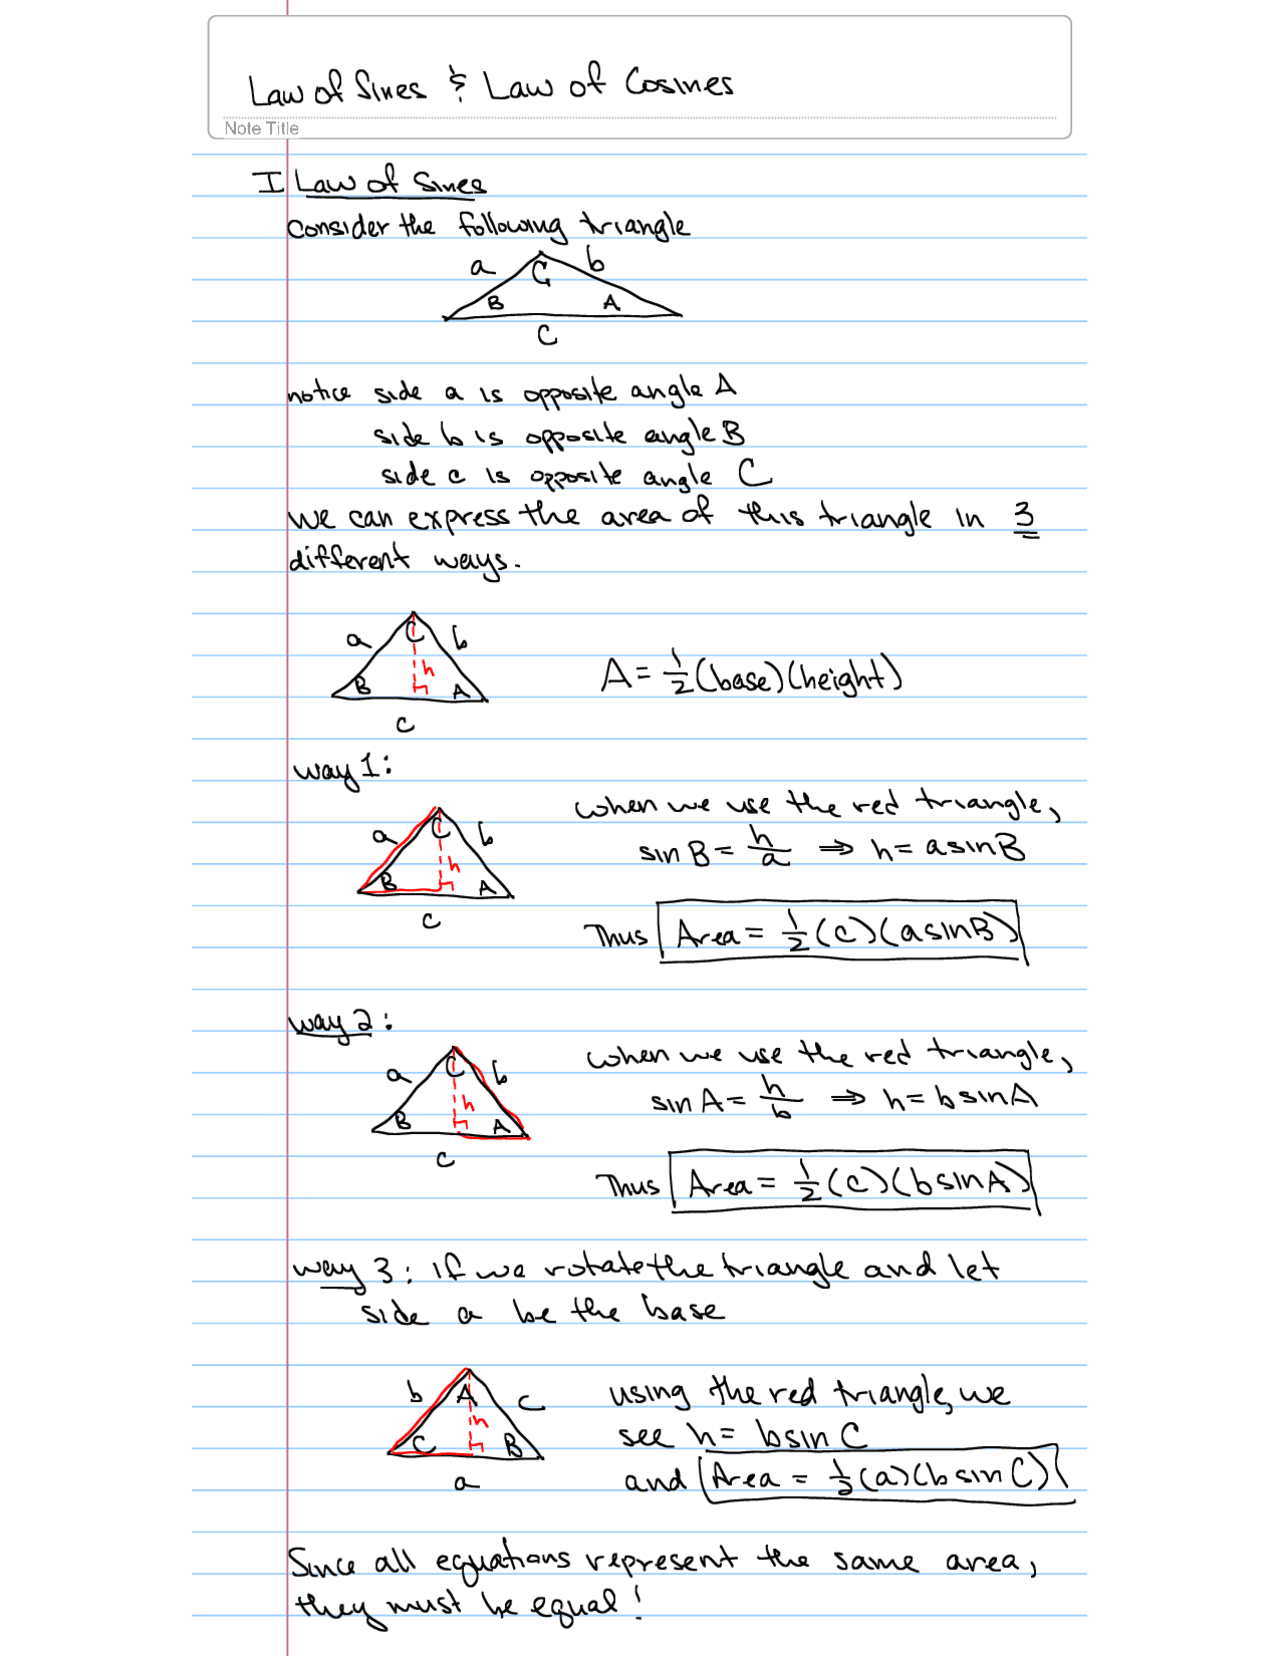 Law of Sines & Law of Cosines
Note Title
I Law of Sines
Consider the following triangle
a C b
B A
C
notice side a is opposite angle A
side b is opposite angle B
side c is opposite angle C
We can express the area of this triangle in 3
different ways.
a C b
h
B A
c
A = 1/2 (base)(height)
way 1:
when we use the red triangle,
a C b
h
B A
c
sin B = h/a ⇒ h = a sin B
Thus Area = 1/2 (c)(a sin B)
way 2:
when we use the red triangle,
a C b
h
B A
c
sin A = h/b ⇒ h = b sin A
Thus Area = 1/2 (c)(b sin A)
way 3: If we rotate the triangle and let
side a be the base
b A c
h
C B
a
using the red triangle, we
see h = b sin C
and Area = 1/2 (a)(b sin C)
Since all equations represent the same area,
they must be equal!